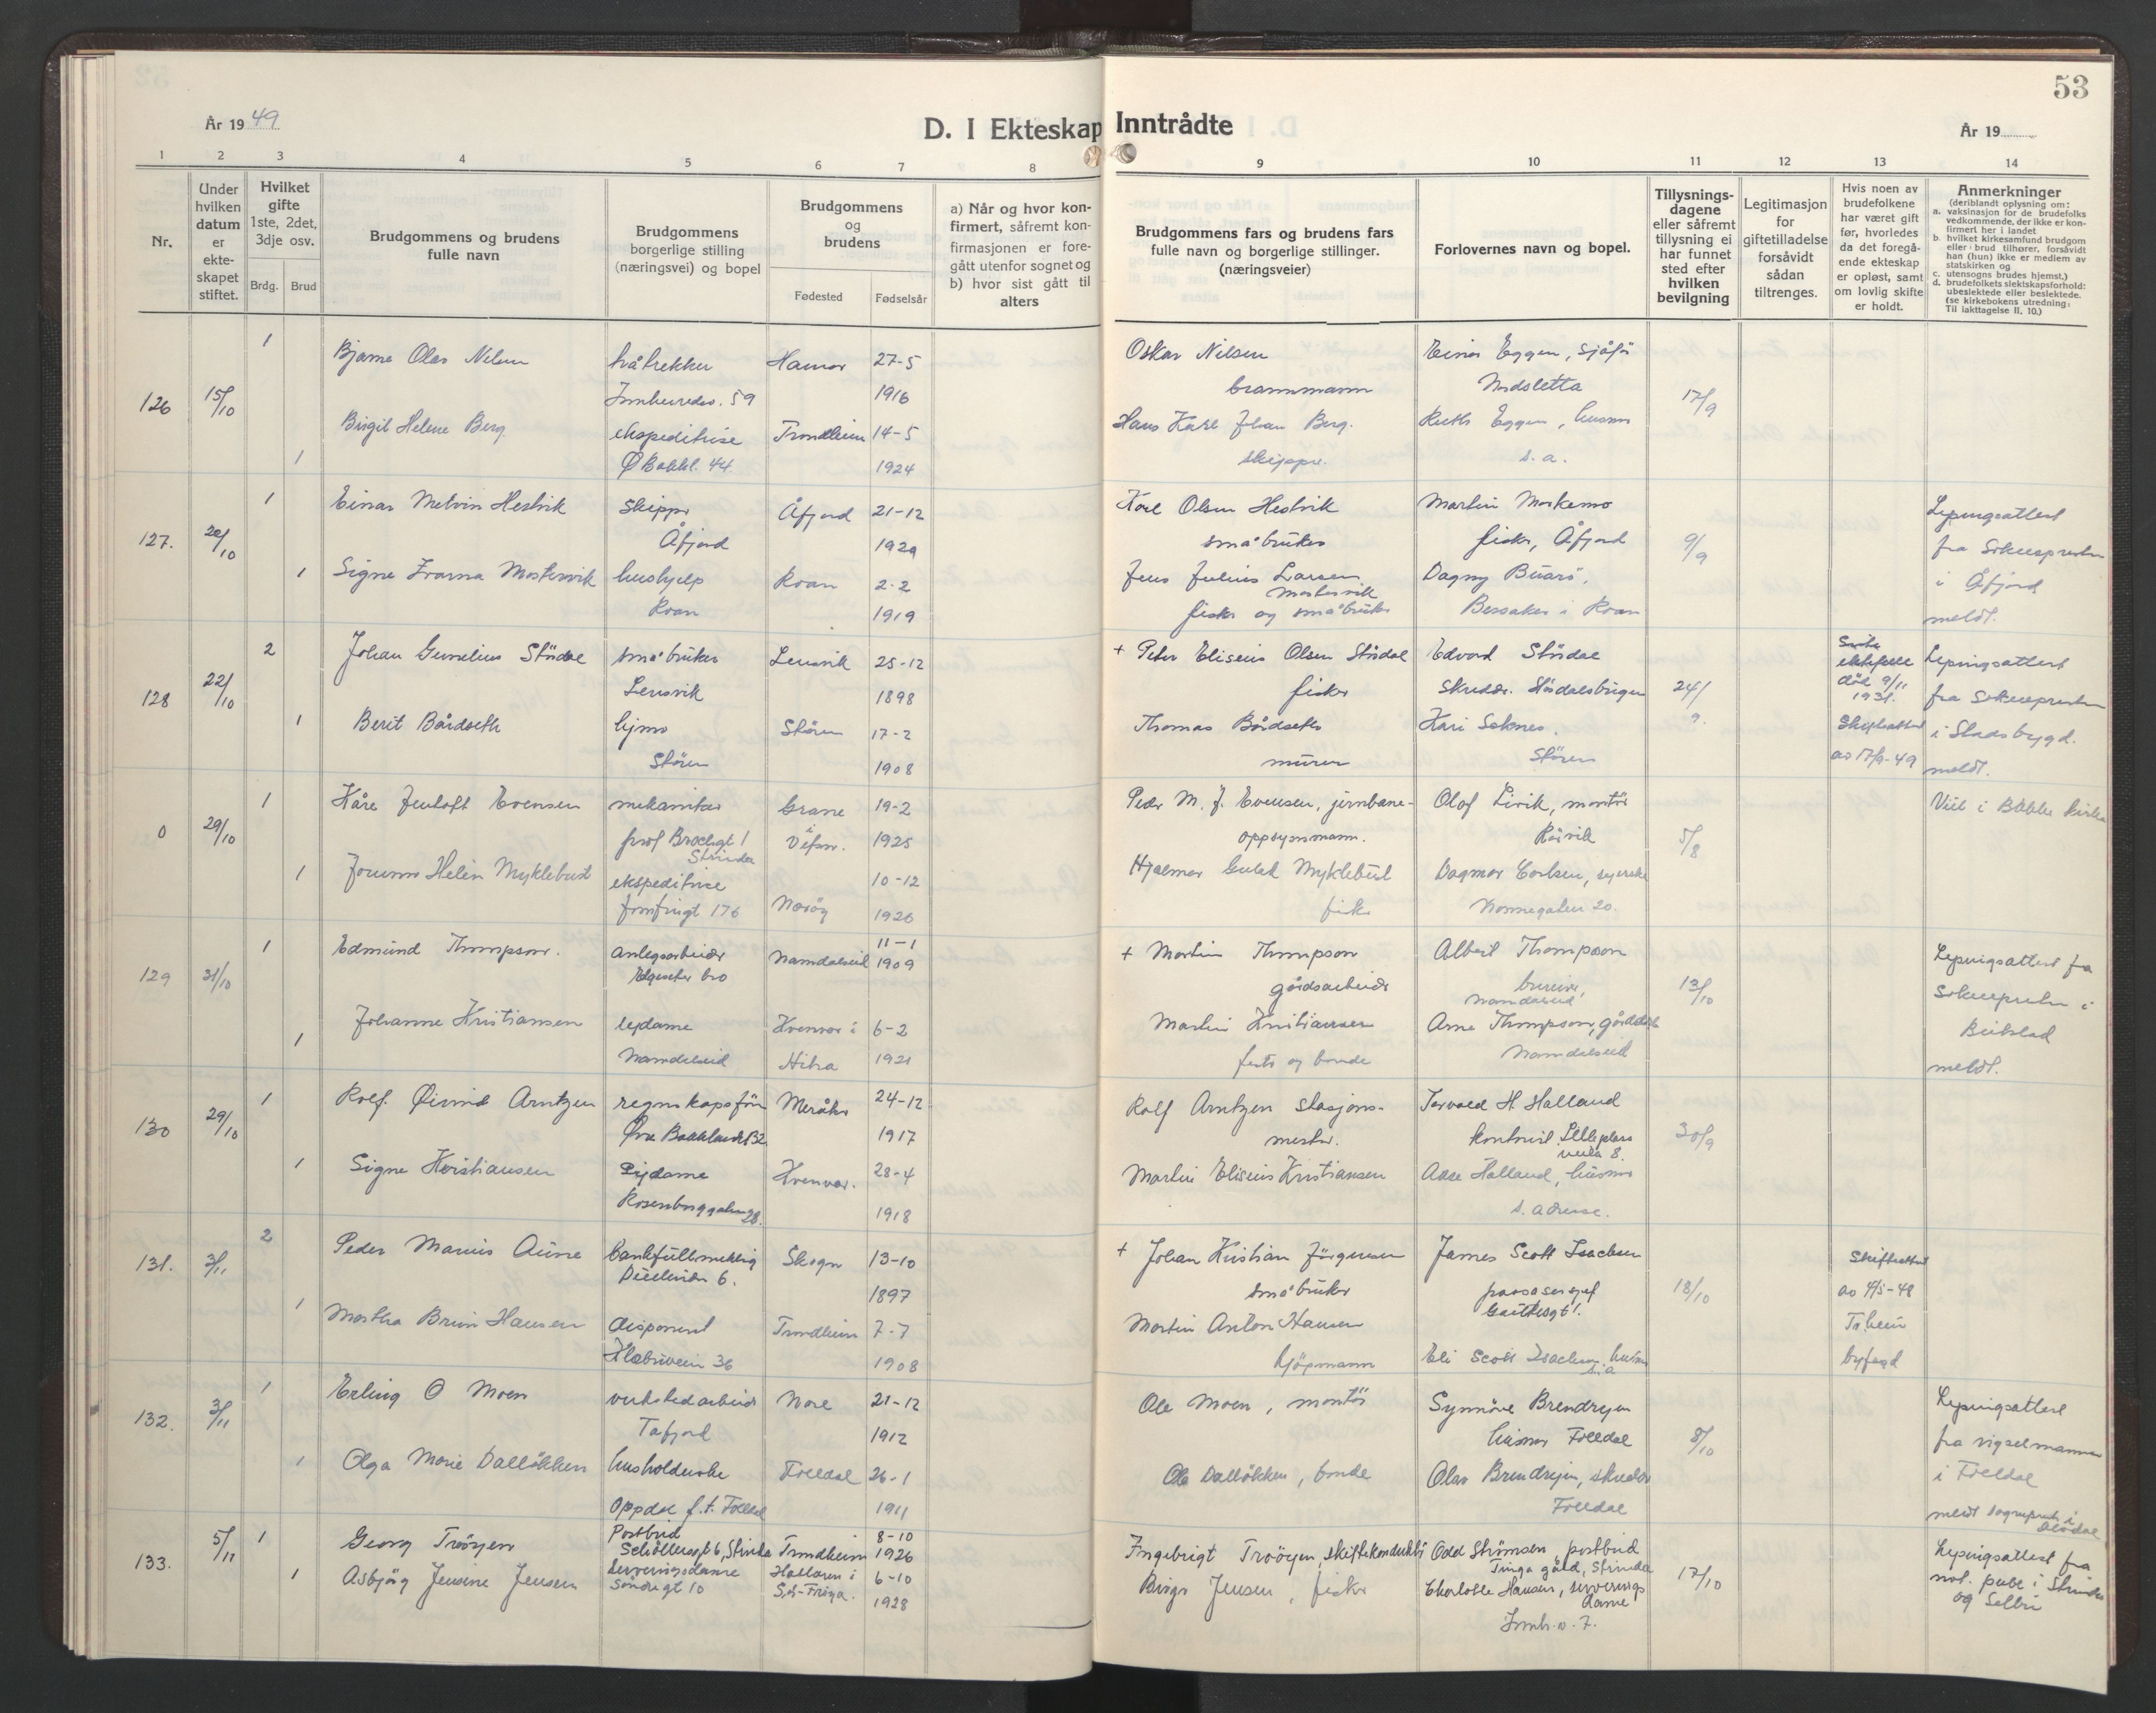 53
År 1949
D. I Ekteskap Inntrådte
År 19
1 2 3 4 5 6 7 8 9 10 11 12 13 14
Nr.
Under hvilken datum er ekteskapet stiftet.
Hvilket gifte 1ste, 2det, 3dje osv.
Brdg. Brud
Brudgommens og brudens fulle navn
Brudgommens borgerlige stilling (næringsvei) og bopel
Brudgommens og brudens
Fødested Fødselsår
a) Når og hvor konfirmert, såfremt konfirmasjonen er foregått utenfor sognet og b) hvor sist gått til alters
Brudgommens fars og brudens fars fulle navn og borgerlige stillinger. (næringsveier)
Forlovernes navn og bopel.
Tillysningsdagene eller såfremt tillysning ei har funnet sted efter hvilken bevilgning
Legitimasjon for giftetilladelse forsåvidt sådan tiltrenges.
Hvis noen av brudefolkene har været gift før, hvorledes da det foregående ekteskap er opløst, samt om lovlig skifte er holdt.
Anmerkninger
(deriblandt oplysning om:
a. vaksinasjon for de brudefolks vedkommende, der ikke er konfirmert her i landet
b. hvilket kirkesamfund brudgom eller brud tilhører, forsåvidt han (hun) ikke er medlem av statskirken og
c. utensogns brudes hjemst.)
d. brudefolkets slektskapsforhold: ubeslektede eller beslektede. (se kirkebokens utredning: Til iakttagelse II. 10.)
126 15/10 1 Bjarne Olav Nilsen tråtrekker Hamar 27-5 Oskar Nilsen Einar Eggen, sjåfør 17/9
Innherredsv. 59 1916 brannmann
1 Birgit Helene Berg ekspeditrise Trondheim 14-5 Hans Karl Johan Berg. Ruth Eggen, husmor
Ø Bakkl. 44. 1924 skipper. s.a.
127. 22/10 1 Einar Melvin Hestvik skipper Åfjord 21-12 Karl Olsen Hestvik Martin Morkemo 9/9 Lysingsattest
Åfjord 1920 småbruker fisker, Åfjord fra Soknepresten
1 Signe Ivarna Mostervik hushjelp Roan 2-2 Jens Julius Larsen Mostervik Dagny Buarö, i Åfjord
Roan 1919 fisker og småbruker Bessaker i Roan meldt.
128 22/10 2 Johan Gunelius Stördal småbruker Lensvik 25-12 + Peter Eliseus Olsen Stördal Edvard Stördal 24/9 ektefelle Lysingsattest
Lensvik 1898 fisker død 9/11 1931. fra Soknepresten
1 Berit Bårdseth Stören 17-2 Thomas Bårdseth Kari Soknes. Skifteattest i Stadsbygd.
Stören 1908 murer Stören av 17/9-49 meldt.
0 29/10 1 Kåre Jentoft Evensen mekaniker Grane i Vefsn. 19-2 Peder M. J. Evensen, jernbane- Olaf Livik, montör 5/8 Viet i Bakke kirke
prof Brochsgt 1 Strinda 1925 oppsynsmann.
1 Jorunn Helen Myklebust ekspeditrise Nærøy 10-12 Hjalmar Gulak Myklebust Dagmar Carlsen, syerske
Jomfrugt 176 1926 fisker Nonnegaten 20.
129 31/10 1 Edmund Thompson. anlegsarbeider Namdalseid 11-1 + Martin Thompson Albert Thompson 13/10 Lysingsattest fra
Elgeseter bro 1909 gårdsarbeider Namdalseid Soknepresten i
1 Johanne Kristiansen sydame Kvenvær i 6-2 Martin Kristiansen Arne Thompson, Beitstad
Namdalseid Hitra 1921 fisker og bonde Namdalseid meldt.
130 29/10 1 Rolf Øivind Arntzen regnskapsför Meråker 24-12 Rolf Arntzen stasjons- Torvald H. Halland 30/9
Övre Bakklandet 32 1917 mester. kontorist
1 Signe Kristiansen Sydame Kvenvær. 28-4 Martin Eliseus Kristiansen Aase Halland, husmor
Rosenborggaten 28. 1918 s. adresse.
131. 3/11 2 Peder Marius Aune bankfullmektig Skogn 13-10 + Johan Kristian Jörgensen James Scott Isachsen 18/10 Skifteattest
6. 1897 småbruker av 4/5-48
1 Martha Brun Hansen disponent Trondheim 7-7 Martin Anton Hansen Tr.heim
Klæbuveien 36 1908 kjöpmann Eli Scott Isachsen, husmor s.a byfogd
132. 3/11 1 Erling O Moen verkstedarbeider Nore 21-12 Ole Moen, montör Synnöve Brendryen 8/10 Lysingsattest
Tafjord 1912 husmor Folldal fra vigselmannen
1 Olga Marie Dallökken husholderske Folldal 26-1 Ole Dallökken, bonde Olav Brendryen, skredder i Folldal
Oppdal f.t. Folldal 1911 Folldal meldt sogneprest i Alvdal
133. 5/11 1 Georg Tröyen Postbud Trondheim 8-10 1926 Ingebrigt Tröyen, skiftekonduktör Odd Strömsen, postbud 17/10 Lysingsattest fra
Schöllersgt 6, Strinda Tunga gård, Strinda not. publ. i Strinda
1 Asbjörg Jensine Jensen Serveringsdame Hallaren i 6-10 Birger Jensen, fisker Charlotte Hansen, serverings- og Selbu
Söndregt 10 Sör-Fröya. 1928 dame
Innh.v. 7.